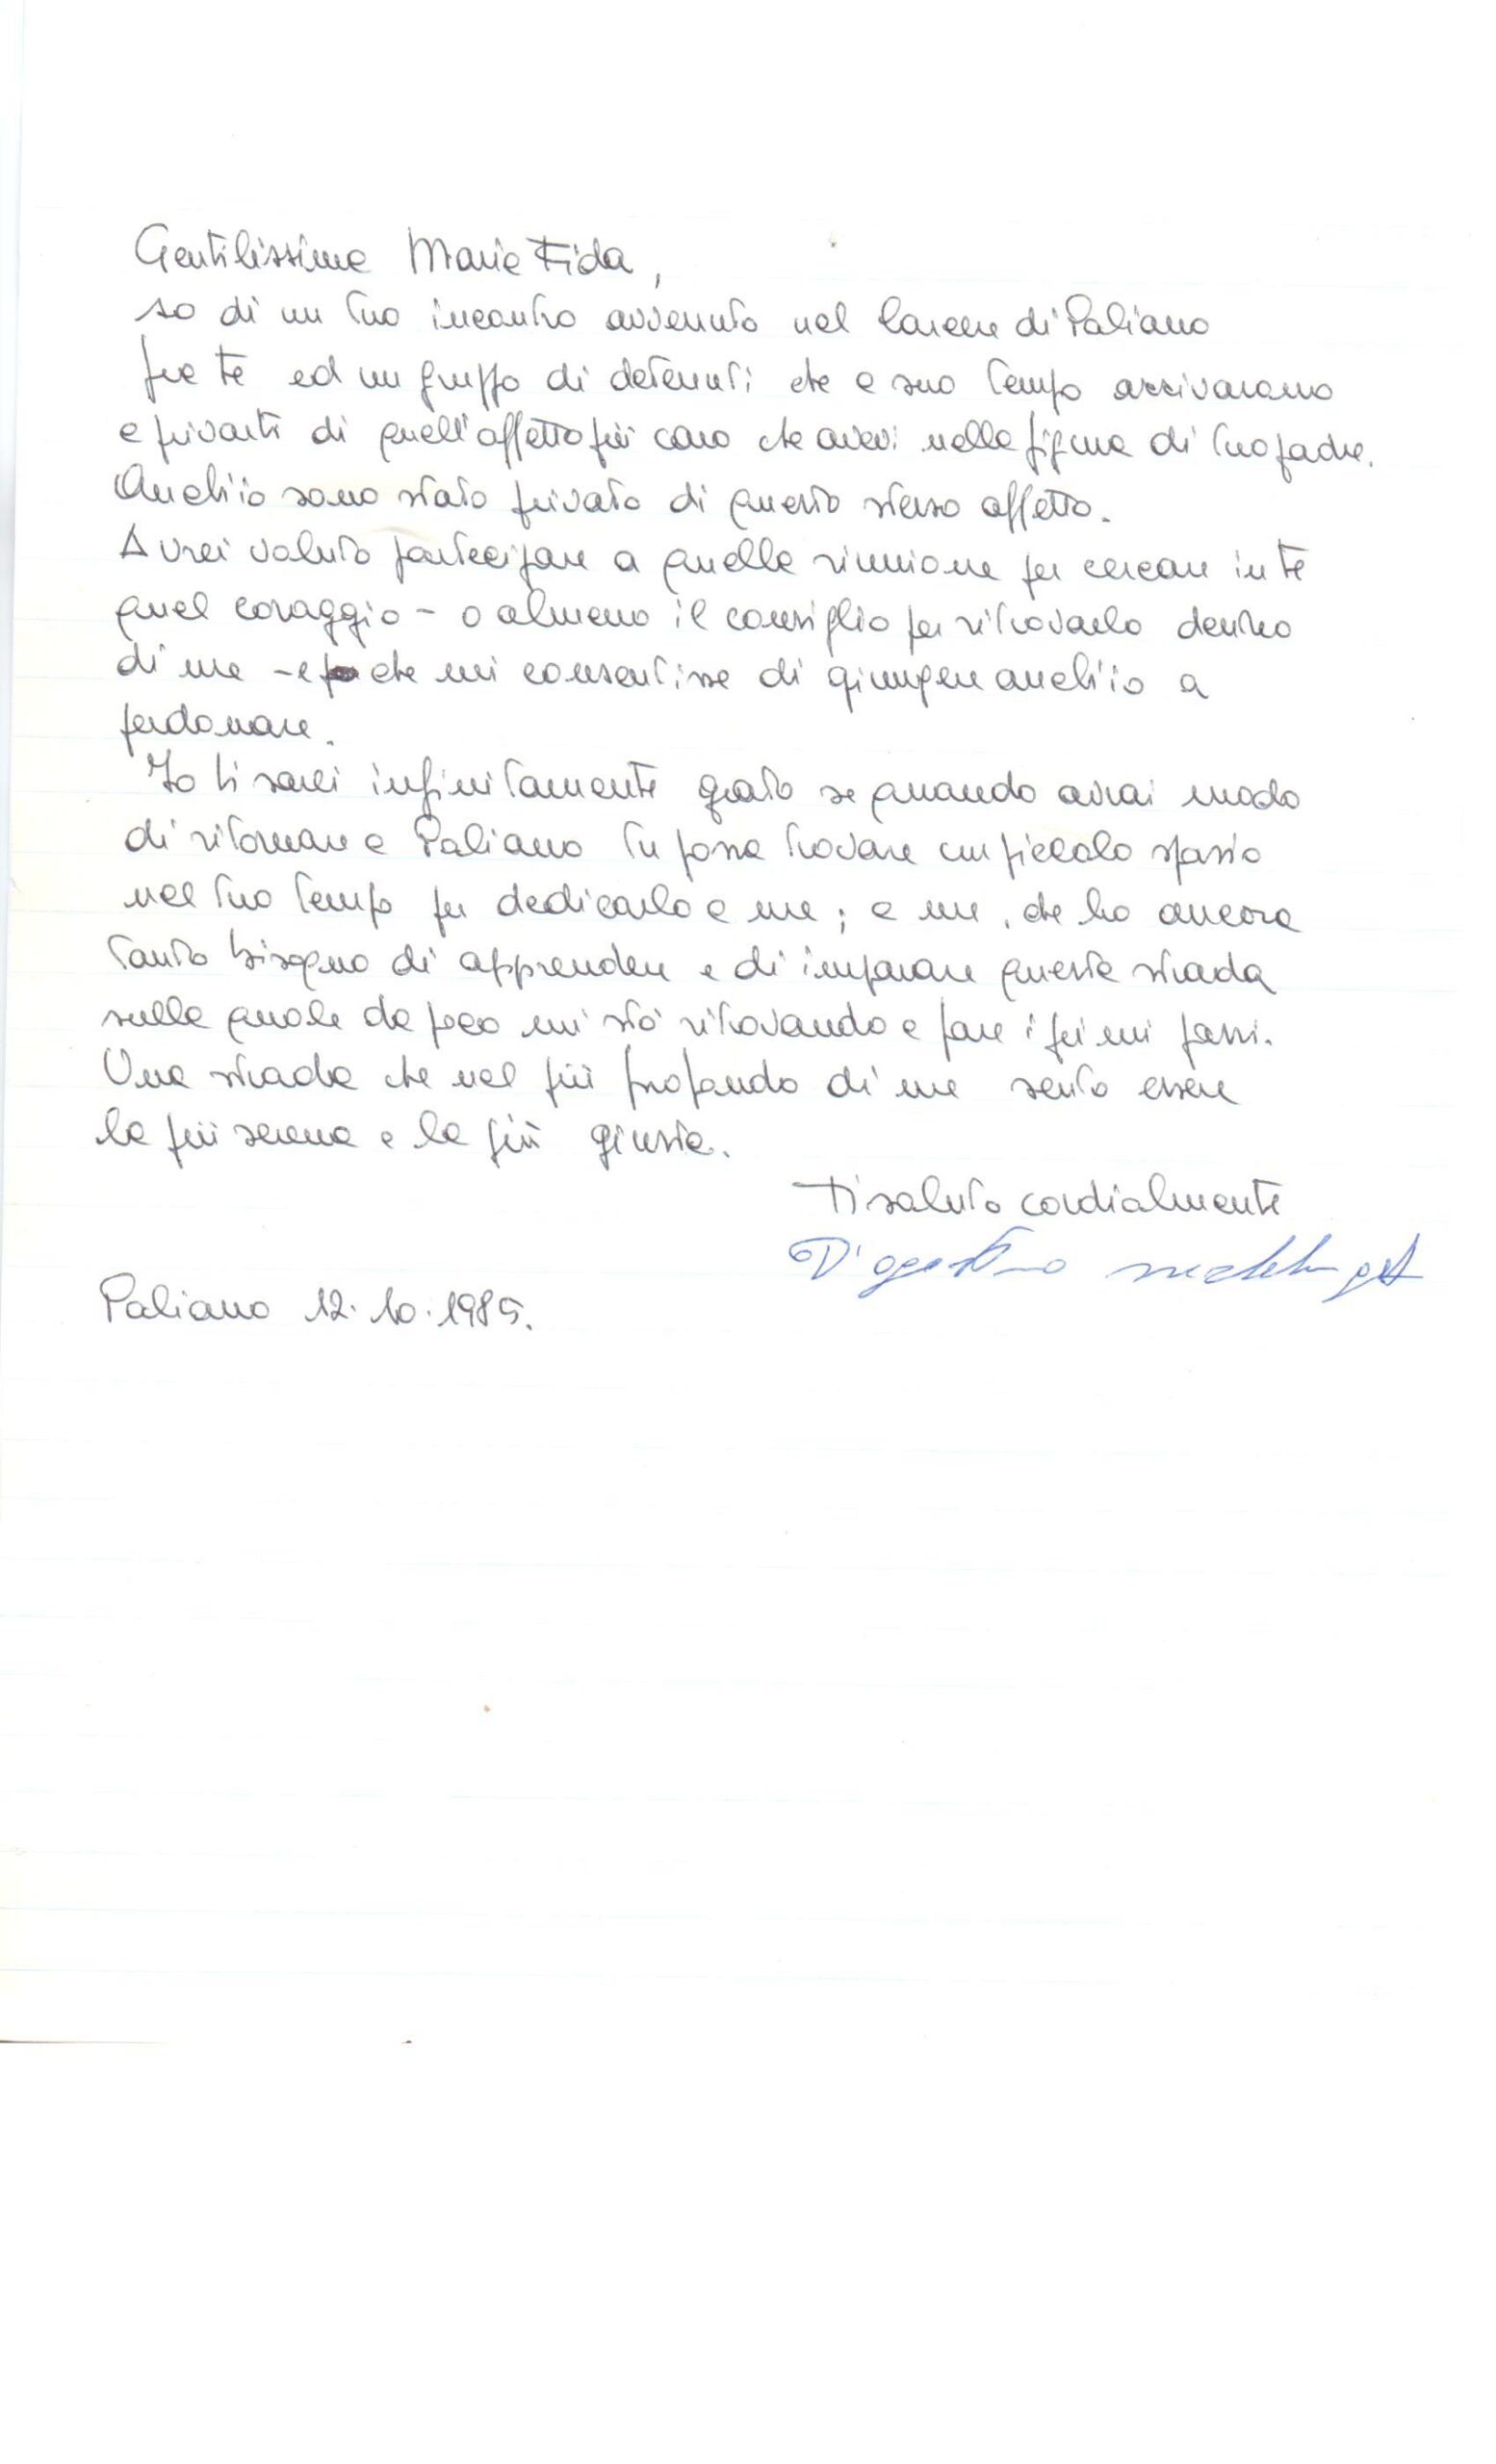 Gentilissima Maria Fida,
so di un tuo incontro avvenuto nel Carcere di Paliano
fra te ed un gruppo di detenuti che a suo tempo arrivarono
a privarti di quell'affetto più caro che avevi nella figura di tuo padre.
Anch'io sono stato privato di questo stesso affetto.
Avrei voluto partecipare a quella riunione per cercare in te
quel coraggio - o almeno il consiglio per ritrovarlo dentro
di me - e che mi consentisse di giungere anch'io a
perdonare.
Io ti sarei infinitamente grato se quando avrai modo
di ritornare a Paliano tu possa trovare un piccolo spazio
nel tuo tempo per dedicarlo a me; a me, che ho ancora
tanto bisogno di apprendere e di imparare questa strada
sulla quale da poco mi stò ritrovando a fare i primi passi.
Una strada che nel più profondo di me sento essere
la più serena e la più giusta.
Ti saluto cordialmente
D'agostino
Paliano 12.10.1985.